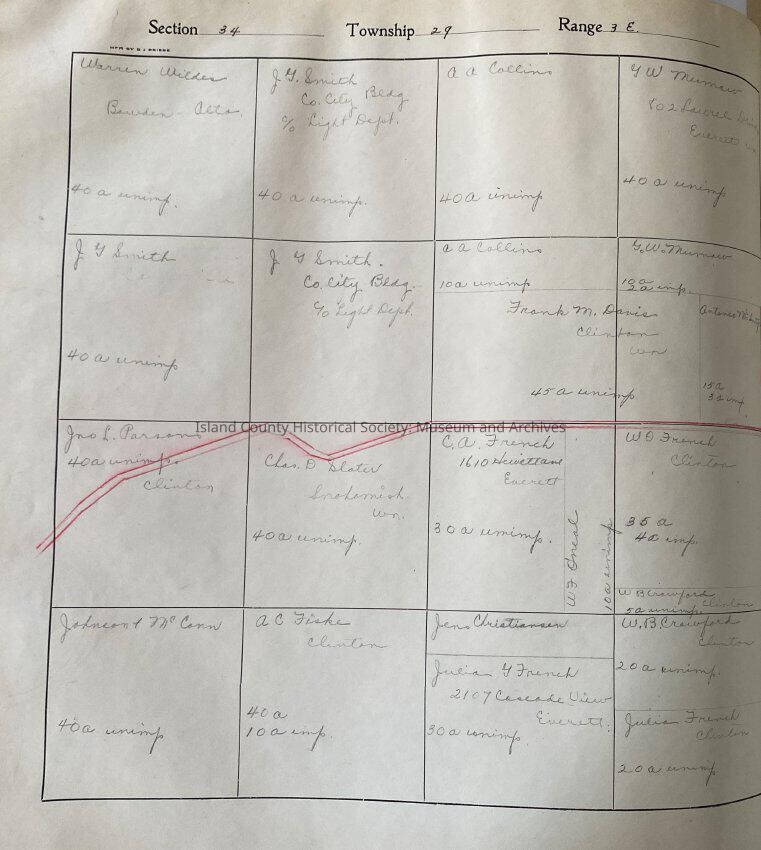 Section 34 Township 29 Range 3 E.
MFR BY
Warren Wildes
Bowden - Alta.
40 a unimp.
J. G. Smith
Co. City Bldg
c/o Light Dept.
40 a unimp.
A A Collins
40 a unimp
G W Mumaw
802 Laurel
Everett
40 a unimp
J G Smith
40 a unimp
J G Smith.
Co. City Bldg.
c/o Light Dept.
A A Collins
10 a unimp
G. W. Mumaw
10 a
2 a imp.
Frank M. Davis
Clinton
Wn
45 a unimp
Antonio
15 a
3 a imp
Island County Historical Society: Museum and Archives
Jno L. Parsons
40 a unimp.
Clinton
Chas. D Slater
Snohomish
Wn.
40 a unimp.
C. A. French
1610 Hewitt Ave
Everett
30 a unimp.
W F Oneal
10 a unimp
W O French
Clinton
35 a
4 a imp.
W B Crawford
Clinton
5 a unimp.
Johnson & McConn
40 a unimp
A C Fiske
Clinton
40 a
10 a imp.
Jens Christiansen
Julian G French
2107 Cascade View
Everett.
30 a unimp.
W. B. Crawford
Clinton
20 a unimp.
Julian French
Clinton
20 a unimp